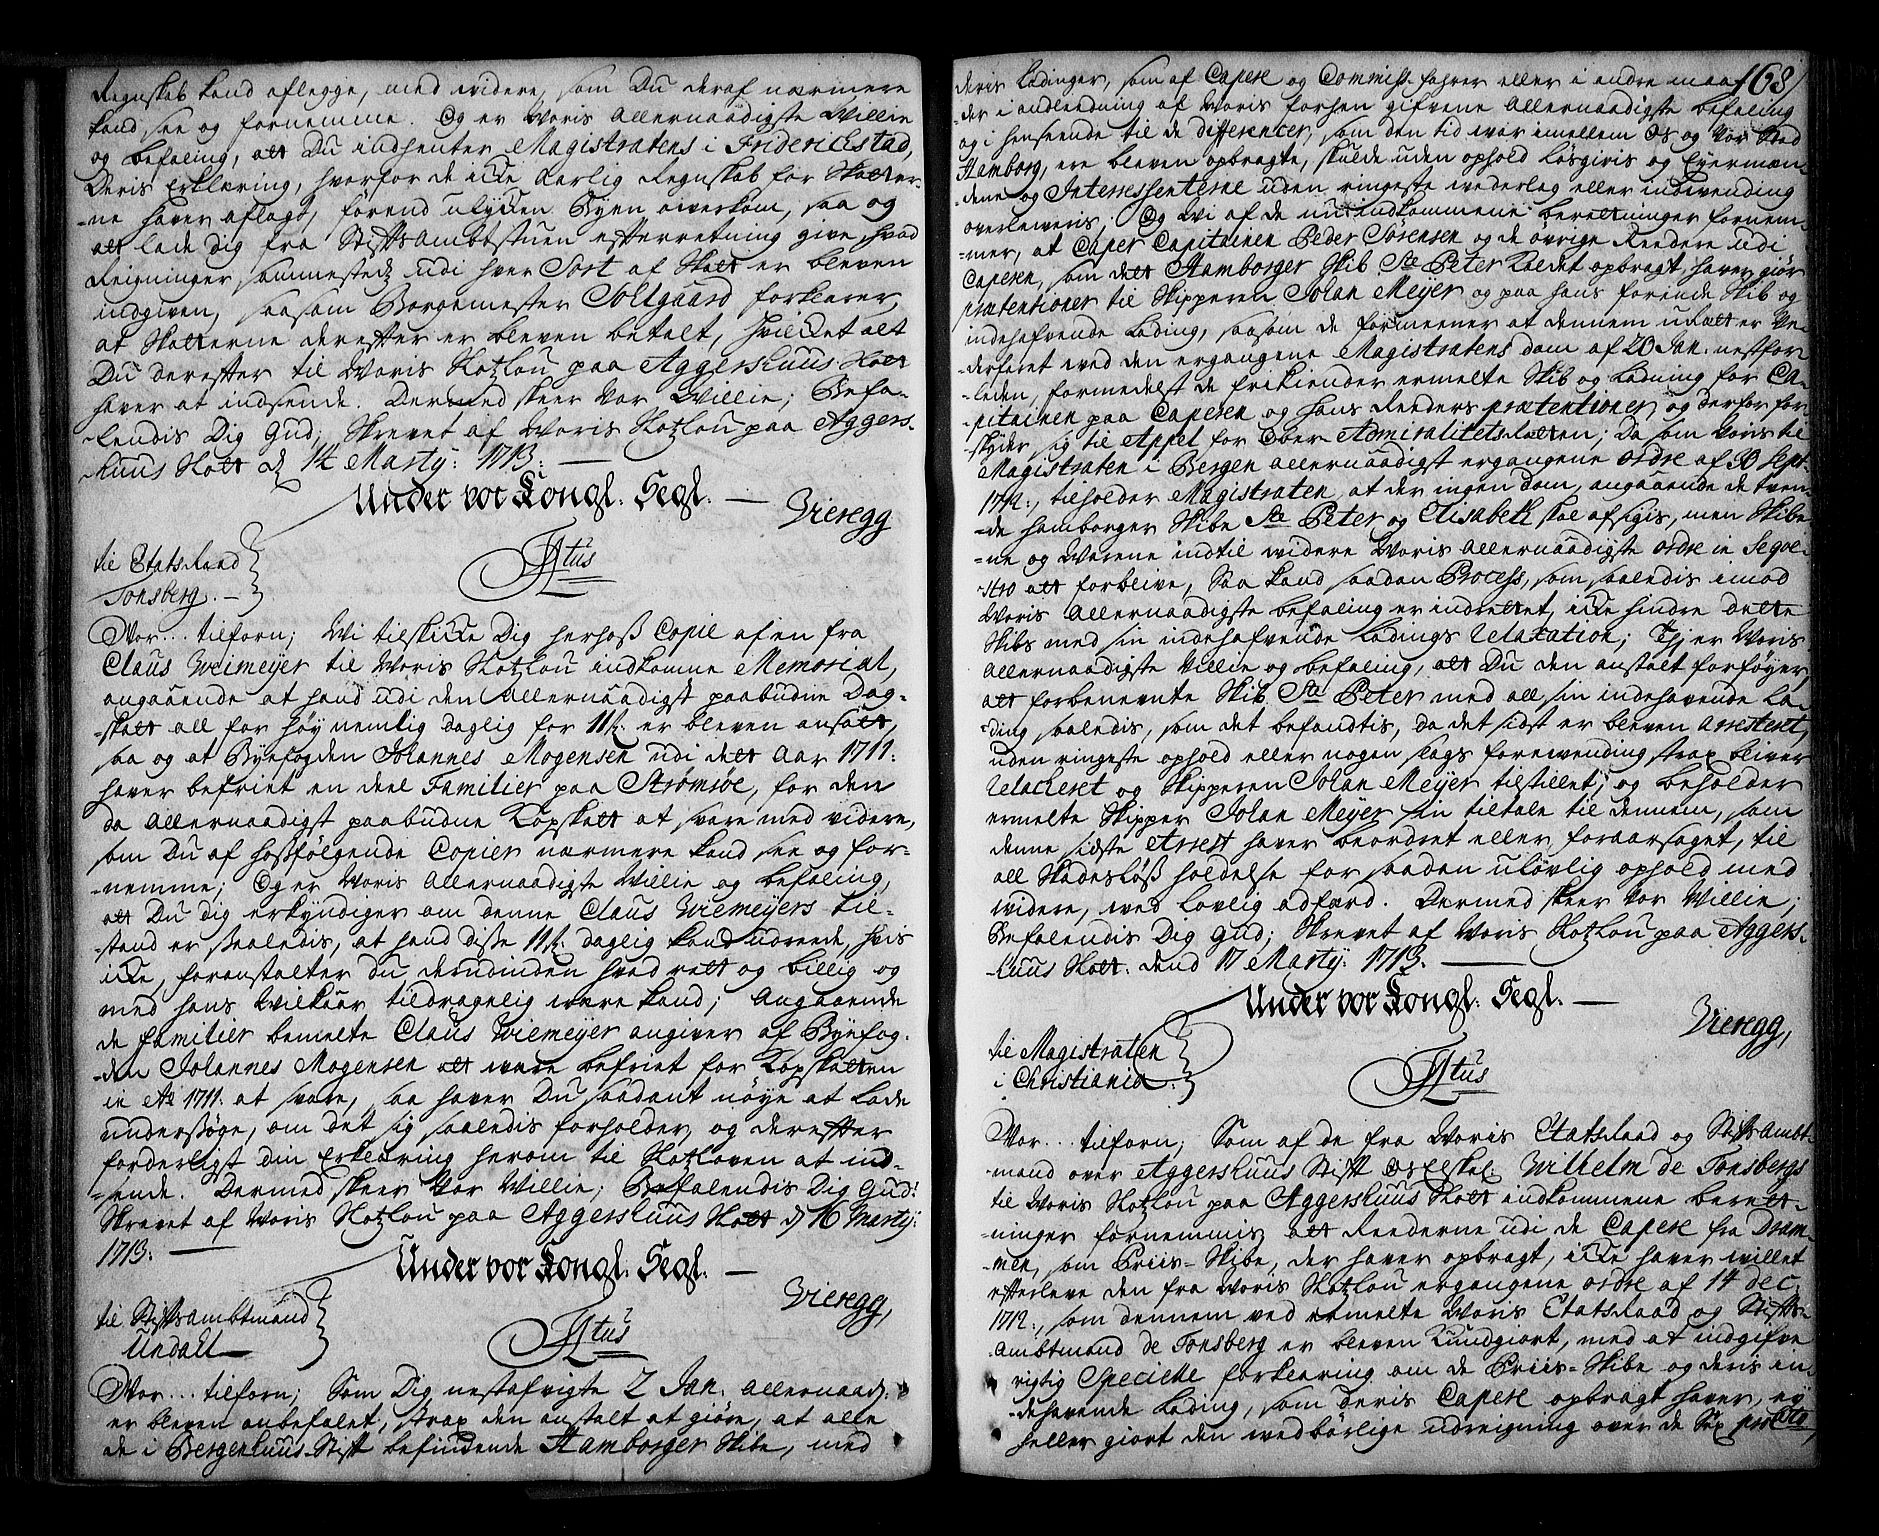 Regnskab kand aflegge, med widere, som Du deraf nærmere
kand see og fornemme. Og er Woris Allernaadigste Willie
og befaling, att Du indhenter Magistratens i Friderichstad,
Deris Erklæring, hvorfor de icke Aarlig Regnskab for Skatter-
-ne haver aflagt, førend ulycken Byen overkom, saa og
att lade Dig fra StiftsAmbtstuen efterretning give, hvad
Reigninger, sammestedz udi hver Sort af Skatt er bleven
indgiven, saasom Borgemester Soltgaard forklarer,
at Skatterne derefter er bleven betalt, hvilcket alt
Du derefter til Woris Slotzlou paa Aggershuus Slott
haver at indsende. Dermed skeer Vor Willie; Befa-
-lendis Dig Gud; Skrevet af Woris Slotzlou paa Aggers-
-huus Slott d 14 Marty: 1713:
Under vor Kongl: Segl.
Vieregg
til Etatsraad
Tonsberg.
Ftus
Vor... tilforn; Wi tilskicke Dig herhoß Copie af en fra
Claus Wiemeyer til Woris Slotzlou indkomne Memorial,
angaaende at hand udi den Allernaadigst paabudne Dag-
-skatt all for høy nemlig daglig for 11 s. er bleven ansatt,
saa og at Byefogden Johannes Mogensen udi dett Aar 1711:
haver befriet en deel Familier paa Strømsøe, for den
da Allernaadigst paabudne Kopskatt at svare med videre,
som Du af hoßfølgende Copier nærmere kand see og for-
-nemme; Og er Woris Allernaadigste Willie og befaling,
att Du dig erkyndiger om denne Claus Wiemeyers til-
-stand er saaledis, at hand diße 11 s. daglig kand udreede, hvis
icke, foranstalter du derudinden hvad rett og billig og
med hans Wilkaar tildragelig were kand; Angaaende
de familier bemelte Claus Wiemeyer angiver af Byefog-
-den Johannes Mogensen att were befriet for Kopskatten
in Ao 1711: at svare, saa haver Du saadant nøye at lade
undersøge, om det sig saaledis forholder, og derefter
forderligst din Erklæring herom til Slotzloven at ind-
-sende. Dermed skeer Vor Willie; Befalendis Dig Gud!
Skrevet af Woris Slotzlou paa Aggershuus Slott d 16 Marty:
1713:
Under vor Kongl: Segl.
Vieregg,
til Stiftsambtmand
Undall
Ftus
Vor... tilforn; Som Dig nestafvigte 2 Jan. allernaad:
er bleven anbefalet, strax den anstalt at giøre, at alle
de i Bergenhuus-Stift befindende Hamborger Skibe, med
168
deris ladinger, som af Capere og Commiss: farer eller i andre maa-
-der i andledning af Woris forhen gifvene Allernaadigste befaling
og i henseende til de differencer, som den tid war imellem Os og Vor Stad
Hamborg, ere bleven opbragte, skulde uden ophold løsgivis og Eyermæn-
dene og Interessenterne uden ringeste wederlag eller indvending
overleveris; Og Wi af de nu indkommene beretninger fornem-
-mer, at Caper Capitainen Peder Sørensen og de øvrige Reedere udi
Caperen, som dett Hamborger Skib St Peter kaldet opbragt haver, giør
prætentioner til Skipperen Johan Meyer og paa hans førende Skib og
indehafvende Lading, saasom de formeener at dennem udatt er We-
-derfaret wed den ergangene Magistratens dom af 20 Jan: nestfor-
-leden, formedelst de frikiender ermelte Skib og ladning for Ca-
-pitainen paa Caperen og hans Reeders prætentioner, og derfor for-
skyder sig til Appel for Ober-Admiralitetsretten; Da som Woris til
Magistraten i Bergen allernaadigst ergangene Ordre af 30 Sept:
1712:, tilholder Magistraten, at der ingen dom, angaaende de tven-
-de hamborger Skibe St Peter og Elisabeth skal afsigis, men Skibe-
-ne og Warene indtil widere Woris Allernaadigste ordre in Seqve-
-stro att forblive, Saa kand saadan Process, som saaledis imod
Woris Allernaadigste befaling er indrettet, icke hindre dette
Skibs med sin indehafvende Ladings relaxation; Thj er Woris
Allernaadigste Willie og befaling, att Du den anstalt forføyer,
att forbenevnte Skib St Peter med all sin indehavende La-
-ding saaledis, som det befandtis, da det sidst er bleven arresteret,
uden ringeste ophold eller nogen slags forewending strax bliver
relacheret og Skipperen Johan Meyer tilstillet; og beholder
ermelte Skipper Johan Meyer sin tiltale til dennem, som
denne sidste Arrest haver beordret eller foraarsaget, til
all Skadesløß holdelse for saadan uløvlig ophold med
widere, wed Lovlig adfærd. Dermed skeer Vor Willie;
Befalendis Dig Gud; Skrevet af Woris Slotzlou paa Aggers-
-huus Slott: dend 17 Marty: 1713.
Under vor Kongl: Segl.
Vieregg,
til Magistraten
i Christiania.
Ftus
Vor... tilforn; Som af de fra Woris Etatsraad og StiftsAmbt-
-mand over Aggershuus Stift Os Elskel Wilhelm de Tonsbergs
til Woris Slotzlou paa Aggershuus Slott indkommene berett-
-ninger fornemmis att Reederne udi de Capere fra Dram-
-men, om Priis-Skibe, der haver opbragt, icke haver willet
efterleve den fra Woris Slotzlou ergangene ordre af 14 dec:
1712:, som dennem ved ermelte Woris Etatsraad og Stifts-
Ambtmand de Tonsberg er bleven kundgiort, med at indgifve
rigtig Specielle forklaring om de Priis-Skibe og deris in-
-dehavende Lading, som deris Capere opbragt haver, ey
heller giort den wedbørlige udreigning over de Sex pro Cto,